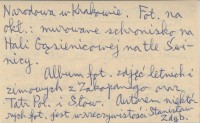 Narodowa w Krakowie. Fot. na
okł.: murowane schronisko na
Hali Gąsienicowej na tle Świ-
nicy.
Album fot. zdjęć letnich i
zimowych z Zakopanego oraz
Tatr Pol. i Słow. Autorem niektó-
rych fot. jest w rzeczywistości Stanisław
Zdyb.